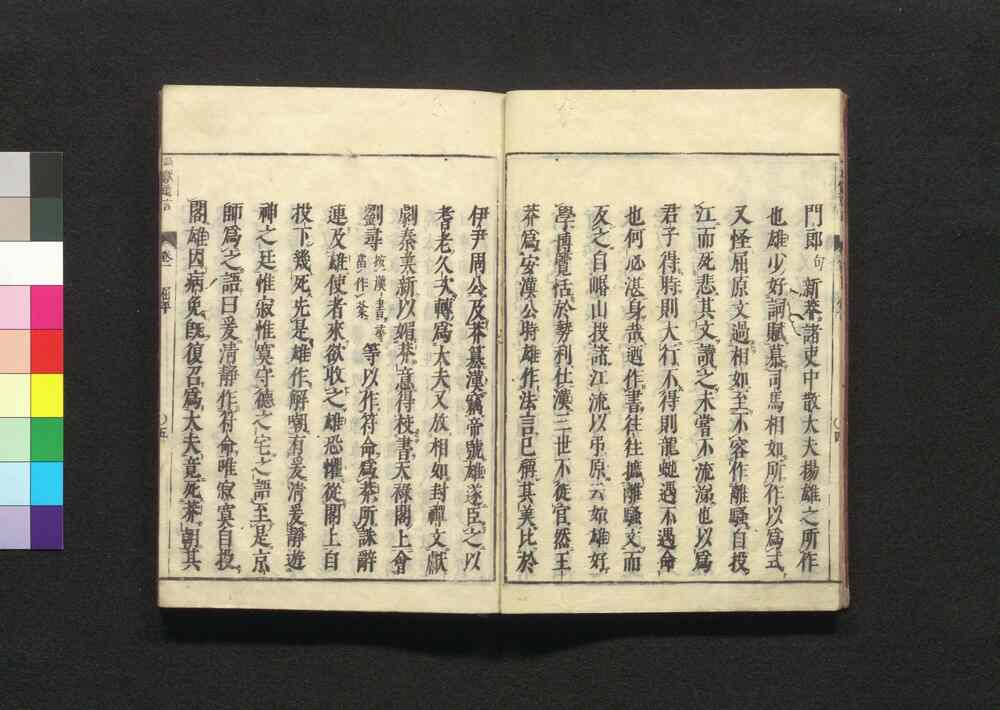 門郎句新莽諸吏中散大夫揚雄之所作
也雄少好詞賦慕司馬相如所作以爲式
又怪屈原文過相如至不容作離騷自投
江而死悲其文讀之未嘗不流涕也以爲
君子得時則大行不得則龍蛇遇不遇命
也何必湛身哉迺作書往往摭離騷文而
反之自㟭山投諸江流以弔原云始雄好
學博覽恬於勢利仕漢三世不徙官然王
莽爲安漢公時雄作法言已稱其美比於
伊尹周公及莽簒漢竊帝號雄遂臣之以
耆老久次轉爲大夫又放相如封禪文獻
劇秦美新以媚莽意得校書天祿閣上會
劉尋按漢書尋當作棻等以作符命爲莽所誅辭
連及雄使者來欲收之雄恐懼從閣上自
投下幾死先是雄作解嘲有爰淸爰靜遊
神之廷惟寂惟寞守德之宅之語至是京
師爲之語曰爰淸靜作符命唯寂寞自投
閣雄因病免旣復召爲大夫竟死莽朝其
卷一